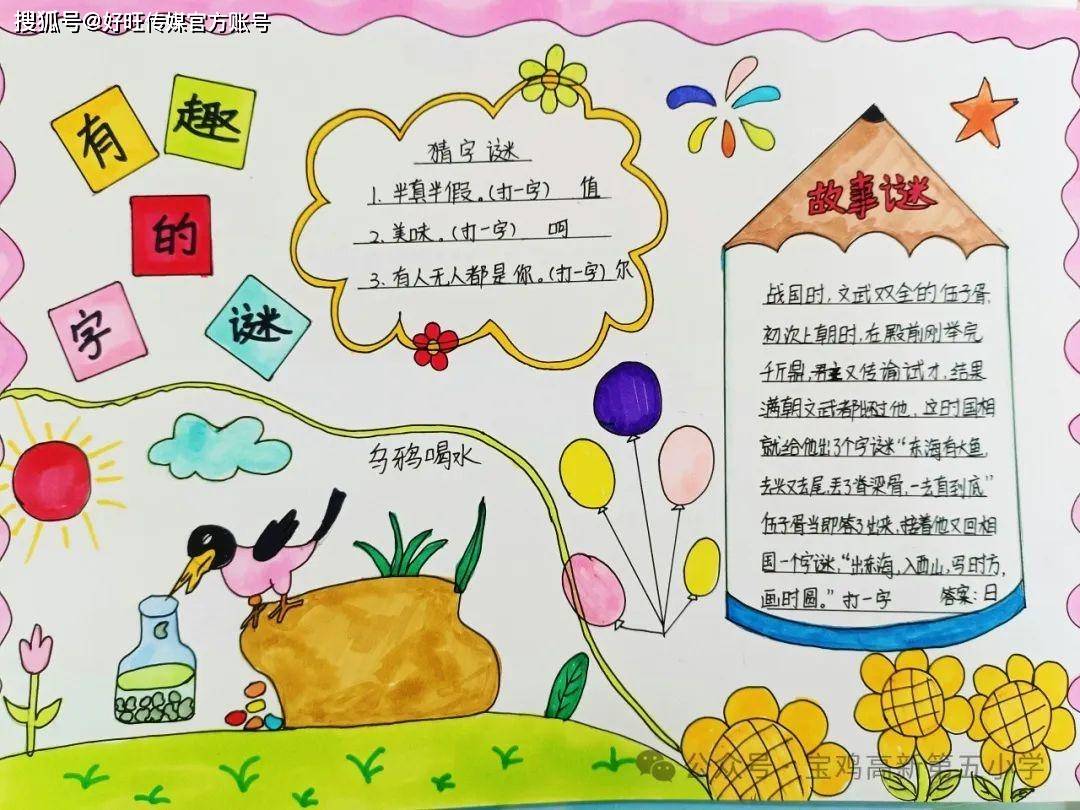 搜狐号@好旺传媒官方账号
有趣
的
字谜
猜字谜
1. 半真半假。(打一字) 值
2. 美味。(打一字) 呵
3. 有人无人都是你。(打一字) 尔
故事谜
战国时,文武双全的伍子胥,
初次上朝时,在殿前刚举完
千斤鼎,君主又传谕试才,结果
满朝文武都难过他,这时国相
就给他出了个字谜“东海有大鱼,
去头又去尾,丢了脊梁骨,一去直到底”
伍子胥当即答了出来,接着他又回相
国一个字谜,“出东海,入西山,写时方,
画时圆。”打一字 答案:日
乌鸦喝水
公众号·宝鸡高新第五小学